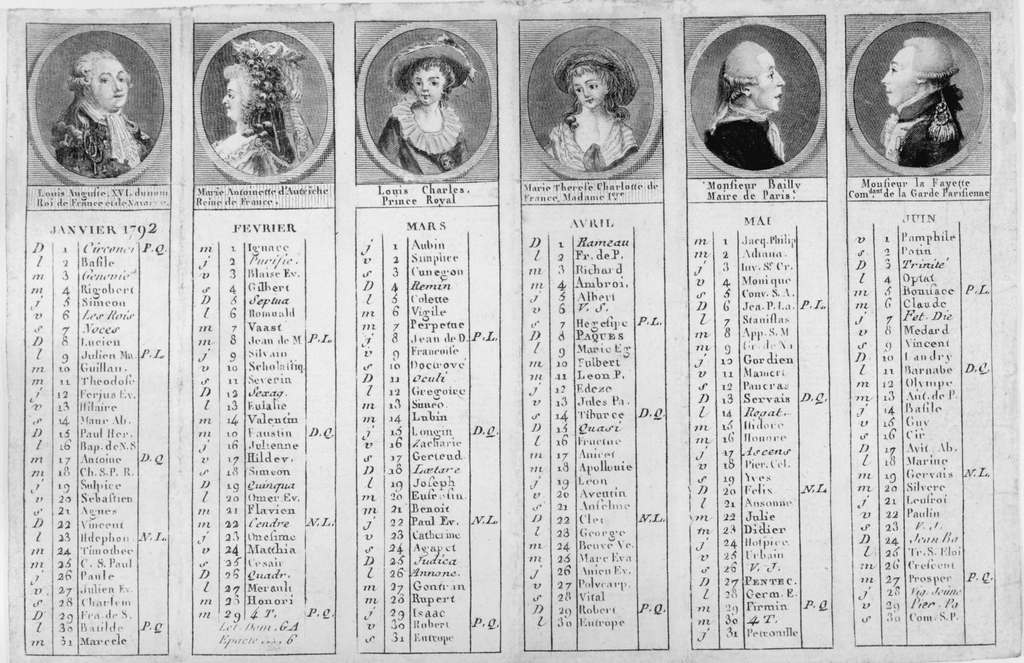 Louis Auguste, XVI. du nom
Roi de France et de Navarre.
JANVIER 1792
D 1 Circonci P.Q.
l 2 Basile
m 3 Genevie
m 4 Rigobert
j 5 Simeon
v 6 Les Rois
s 7 Noces
D 8 Lucien
l 9 Julien Ma. P.L.
m 10 Guillau.
m 11 Theodose
j 12 Ferjus Ev.
v 13 Hilaire
s 14 Maur Ab.
D 15 Paul Her.
l 16 Bap. de N.S
m 17 Antoine D.Q
m 18 Ch. S.P. R.
j 19 Sulpice
v 20 Sebastien
s 21 Agnes
D 22 Vincent
l 23 Ildephon N.L.
m 24 Timothée
m 25 C. S. Paul
j 26 Paule
v 27 Julien Ev.
s 28 Charlem
D 29 Fra. de S.
l 30 Batilde P.Q
m 31 Marcele
Marie Antoinette d'Autriche
Reine de France.
FEVRIER
m 1 Ignace
j 2 Purific.
v 3 Blaise Ev.
s 4 Gilbert
D 5 Septua
l 6 Romuald
m 7 Vaast
m 8 Jean de M P.L.
j 9 Silvain
v 10 Scholastiq
s 11 Severin
D 12 Sexag.
l 13 Eulalie
m 14 Valentin
m 15 Faustin D.Q.
j 16 Julienne
v 17 Hildev.
s 18 Simeon
D 19 Quinqua
l 20 Omer Ev.
m 21 Flavien
m 22 Cendre N.L.
j 23 Onesime
v 24 Matthia
s 25 Cesair
D 26 Quadr.
l 27 Merault
m 28 Honori
m 29 4 T. P.Q.
Let. Dom. GA
Epacte .... 6
Louis Charles.
Prince Royal
MARS
j 1 Aubin
v 2 Simplice
s 3 Cunegon
D 4 Remin
l 5 Colette
m 6 Vigile
m 7 Perpetue
j 8 Jean de D. P.L.
v 9 Francoise
s 10 Doctrové
D 11 Oculi
l 12 Gregoire
m 13 Simeo.
m 14 Lubin
j 15 Longin D.Q.
v 16 Zacharie
s 17 Gertrud.
D 18 Lætare
l 19 Joseph
m 20
m 21 Benoit
j 22 Paul Ev. N.L.
v 23 Catherine
s 24 Agapet
D 25 Judica
l 26 Annonc.
m 27 Gontran
m 28 Rupert
j 29 Isaac
v 30 Robert P.Q.
s 31 Eutrope
Marie Therese Charlotte de
France, Madame 1ère
AVRIL
D 1 Rameau
l 2 Fr. de P.
m 3 Richard
m 4 Ambroi.
j 5 Albert
v 6 V. S.
s 7 Hegesipe P.L.
D 8 PAQUES
l 9 Marie Eg
m 10 Fulbert
m 11 Leon P.
j 12
v 13 Jules Pa.
s 14 Tiburce D.Q.
D 15 Quasi
l 16 Fructue
m 17 Anicet
m 18 Apollonie
j 19 Leon
v 20 Aventin
s 21 Anselme
D 22 Clet N.L.
l 23 George
m 24 Beuve Ve.
m 25 Marc Eva
j 26
v 27 Policarp.
s 28 Vital
D 29 Robert P.Q.
l 30 Eutrope
Monsieur Bailly
Maire de Paris.
MAI
m 1 Jacq. Philip
m 2
j 3 Inv. Ste Cr.
v 4 Monique
s 5 Conv. S. A.
D 6 Jea. P. La. P.L.
l 7 Stanislas
m 8 App. S. M
m 9 Gr. de Na
j 10 Gordien
v 11 Mamert
s 12 Pancras
D 13 Servais D.Q.
l 14 Rogat.
m 15 Isidore
m 16 Honore
j 17 Ascens
v 18 Pier. Cel.
s 19 Yves
D 20 Felix N.L
l 21 Ansonne
m 22 Julie
m 23 Didier
j 24 Hospice
v 25 Urbain
s 26 V. J.
D 27 PENTEC.
l 28 Germ. E.
m 29 Firmin P.Q
m 30 4 T.
j 31 Petronille
Monsieur la Fayette
Com.dant de la Garde Parisienne
JUIN
v 1 Pamphile
s 2 Potin
D 3 Trinité
l 4 Optat
m 5 Boniface P.L.
m 6 Claude
j 7 Fet. Die
v 8 Medard
s 9 Vincent
D 10 Landry
l 11 Barnabe D.Q.
m 12 Olympe
m 13 Ant. de P.
j 14 Basile
v 15 Guy
s 16 Cir
D 17 Avit Ab.
l 18 Marine
m 19 Gervais N.L.
m 20 Silvere
j 21 Leufroi
v 22 Paulin
s 23 V. J.
D 24 Jean Ba
l 25 Tr. S. Eloi
m 26 Crescent
m 27 Prosper P.Q.
j 28 Vig. Jeune
v 29 Pier. Pa
s 30 Com. S.P.